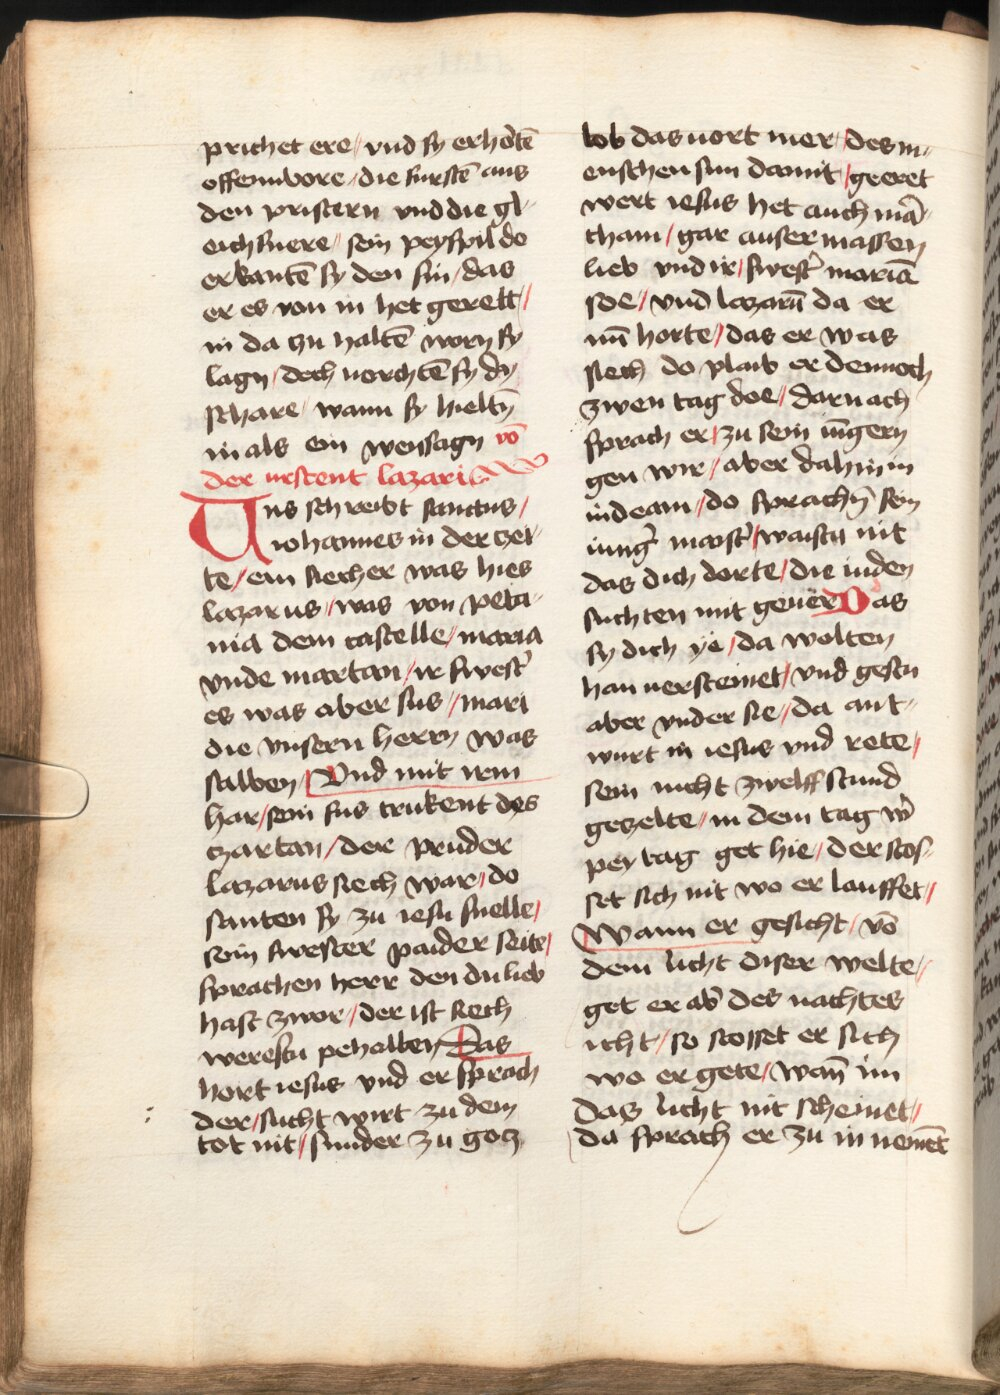 prichet ere / vnd sy erhortē
offennbore / die furstē aus
den pristern vnd die gl-
eichsnere / sein peyspil do
erkantē sy den sin / das
er es von in het gerett /
in da czu haltē worn sy
lagn / doch vorchtē sy dy
schare / wann sy hieltn̄
in als ein weyssagn vō
der urstent lazari
Uns schreibt sanctus /
iohannes in der czei-
te / ein siecher was hies
lazarus / was von peta-
nia dem castelle / maria
vnde martan / ir swest̓
es was aber sus / mari
die vnsern herrn was
salben / Vnd mit irem
har / sein fus trukent des
czartan / der pruder
lazarus siech war / do
santen sy zu iesu snelle /
sein swester paider seite /
sprachen herr den du lieb
hast zwor / der ist siech
werestu pehalben Das
hort iesus vnd er sprach
der / sucht wirt zu dem
tot nit / sunder zu gocz
lob das vort mer / des m-
enschen sun damit / geeret
wert iesus het auch mā-
tham / gar auser massen
lieb vnd ir / swest̓ mariā
soe / vnd lazarū da er
nū horte / das er was
siech do plaib er dennoch
zwen tag doe / darnach
sprach er / zu sein iūgern
gen wir / aber dahin in
iudeam / do sprachn̄ sein
iung̓ maist̓ / waistu nit
das dich dorte / die iuden
suchten mit geuer Das
sy dich ye / da wolten
han versteinet / vnd gestu
aber vnder sie / da ant-
wurt in iesus vnd rete /
sein nicht zwelff stund
geczelte / in dem tag w̓
pey tag get hie / der stos-
set sich nit wo er lauffet /
Wann er gesicht / vō
dem licht diser welte /
get er ab̓ des nachtes
icht / so stosset er sich
wo er gete / wan̄ im
das licht nit scheinet /
da sprach er zu in nemēt